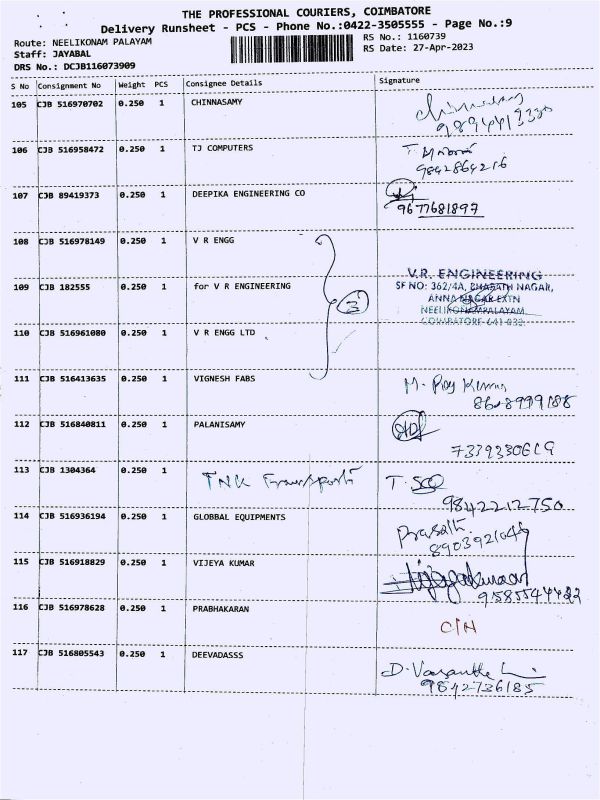 THE PROFESSIONAL COURIERS, COIMBATORE
Delivery Runsheet - PCS - Phone No.:0422-3505555 - Page No.:9
Route: NEELIKONAM PALAYAM
RS No.: 1160739
Staff: JAYABAL
RS Date: 27-Apr-2023
DRS No.: DCJB116073909
S No Consignment No Weight PCS Consignee Details Signature
105 CJB 516970702 0.250 1 CHINNASAMY
106 CJB 516958472 0.250 1 TJ COMPUTERS
9842864216
107 CJB 89419373 0.250 1 DEEPIKA ENGINEERING CO
9677681897
108 CJB 516978149 0.250 1 V R ENGG
V.R. ENGINEERING
109 CJB 182555 0.250 1 for V R ENGINEERING 3 SF NO: 362/4A, BHARATH NAGAR,
ANNA NAGAR EXTN
NEELIKONAMPALAYAM
COIMBATORE-641 033.
110 CJB 516961080 0.250 1 V R ENGG LTD
111 CJB 516413635 0.250 1 VIGNESH FABS M. Raj Kumar
112 CJB 516840811 0.250 1 PALANISAMY
7339330619
113 CJB 1304364 0.250 1 TNK Transports T.
9842212750
114 CJB 516936194 0.250 1 GLOBBAL EQUIPMENTS Prasath
115 CJB 516918829 0.250 1 VIJEYA KUMAR Vijeyakumar
116 CJB 516978628 0.250 1 PRABHAKARAN C/N
117 CJB 516805543 0.250 1 DEEVADASSS D.
9842736185